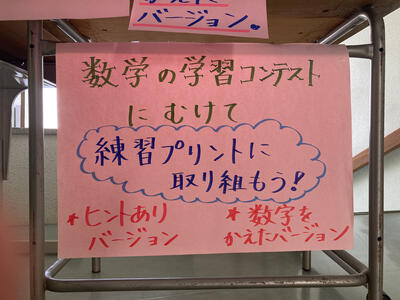 かえた
バージョン。
数学の学習コンテスト
にむけて
練習プリントに
取り組もう!
*ヒントあり
バージョン
*数字を
かえたバージョン